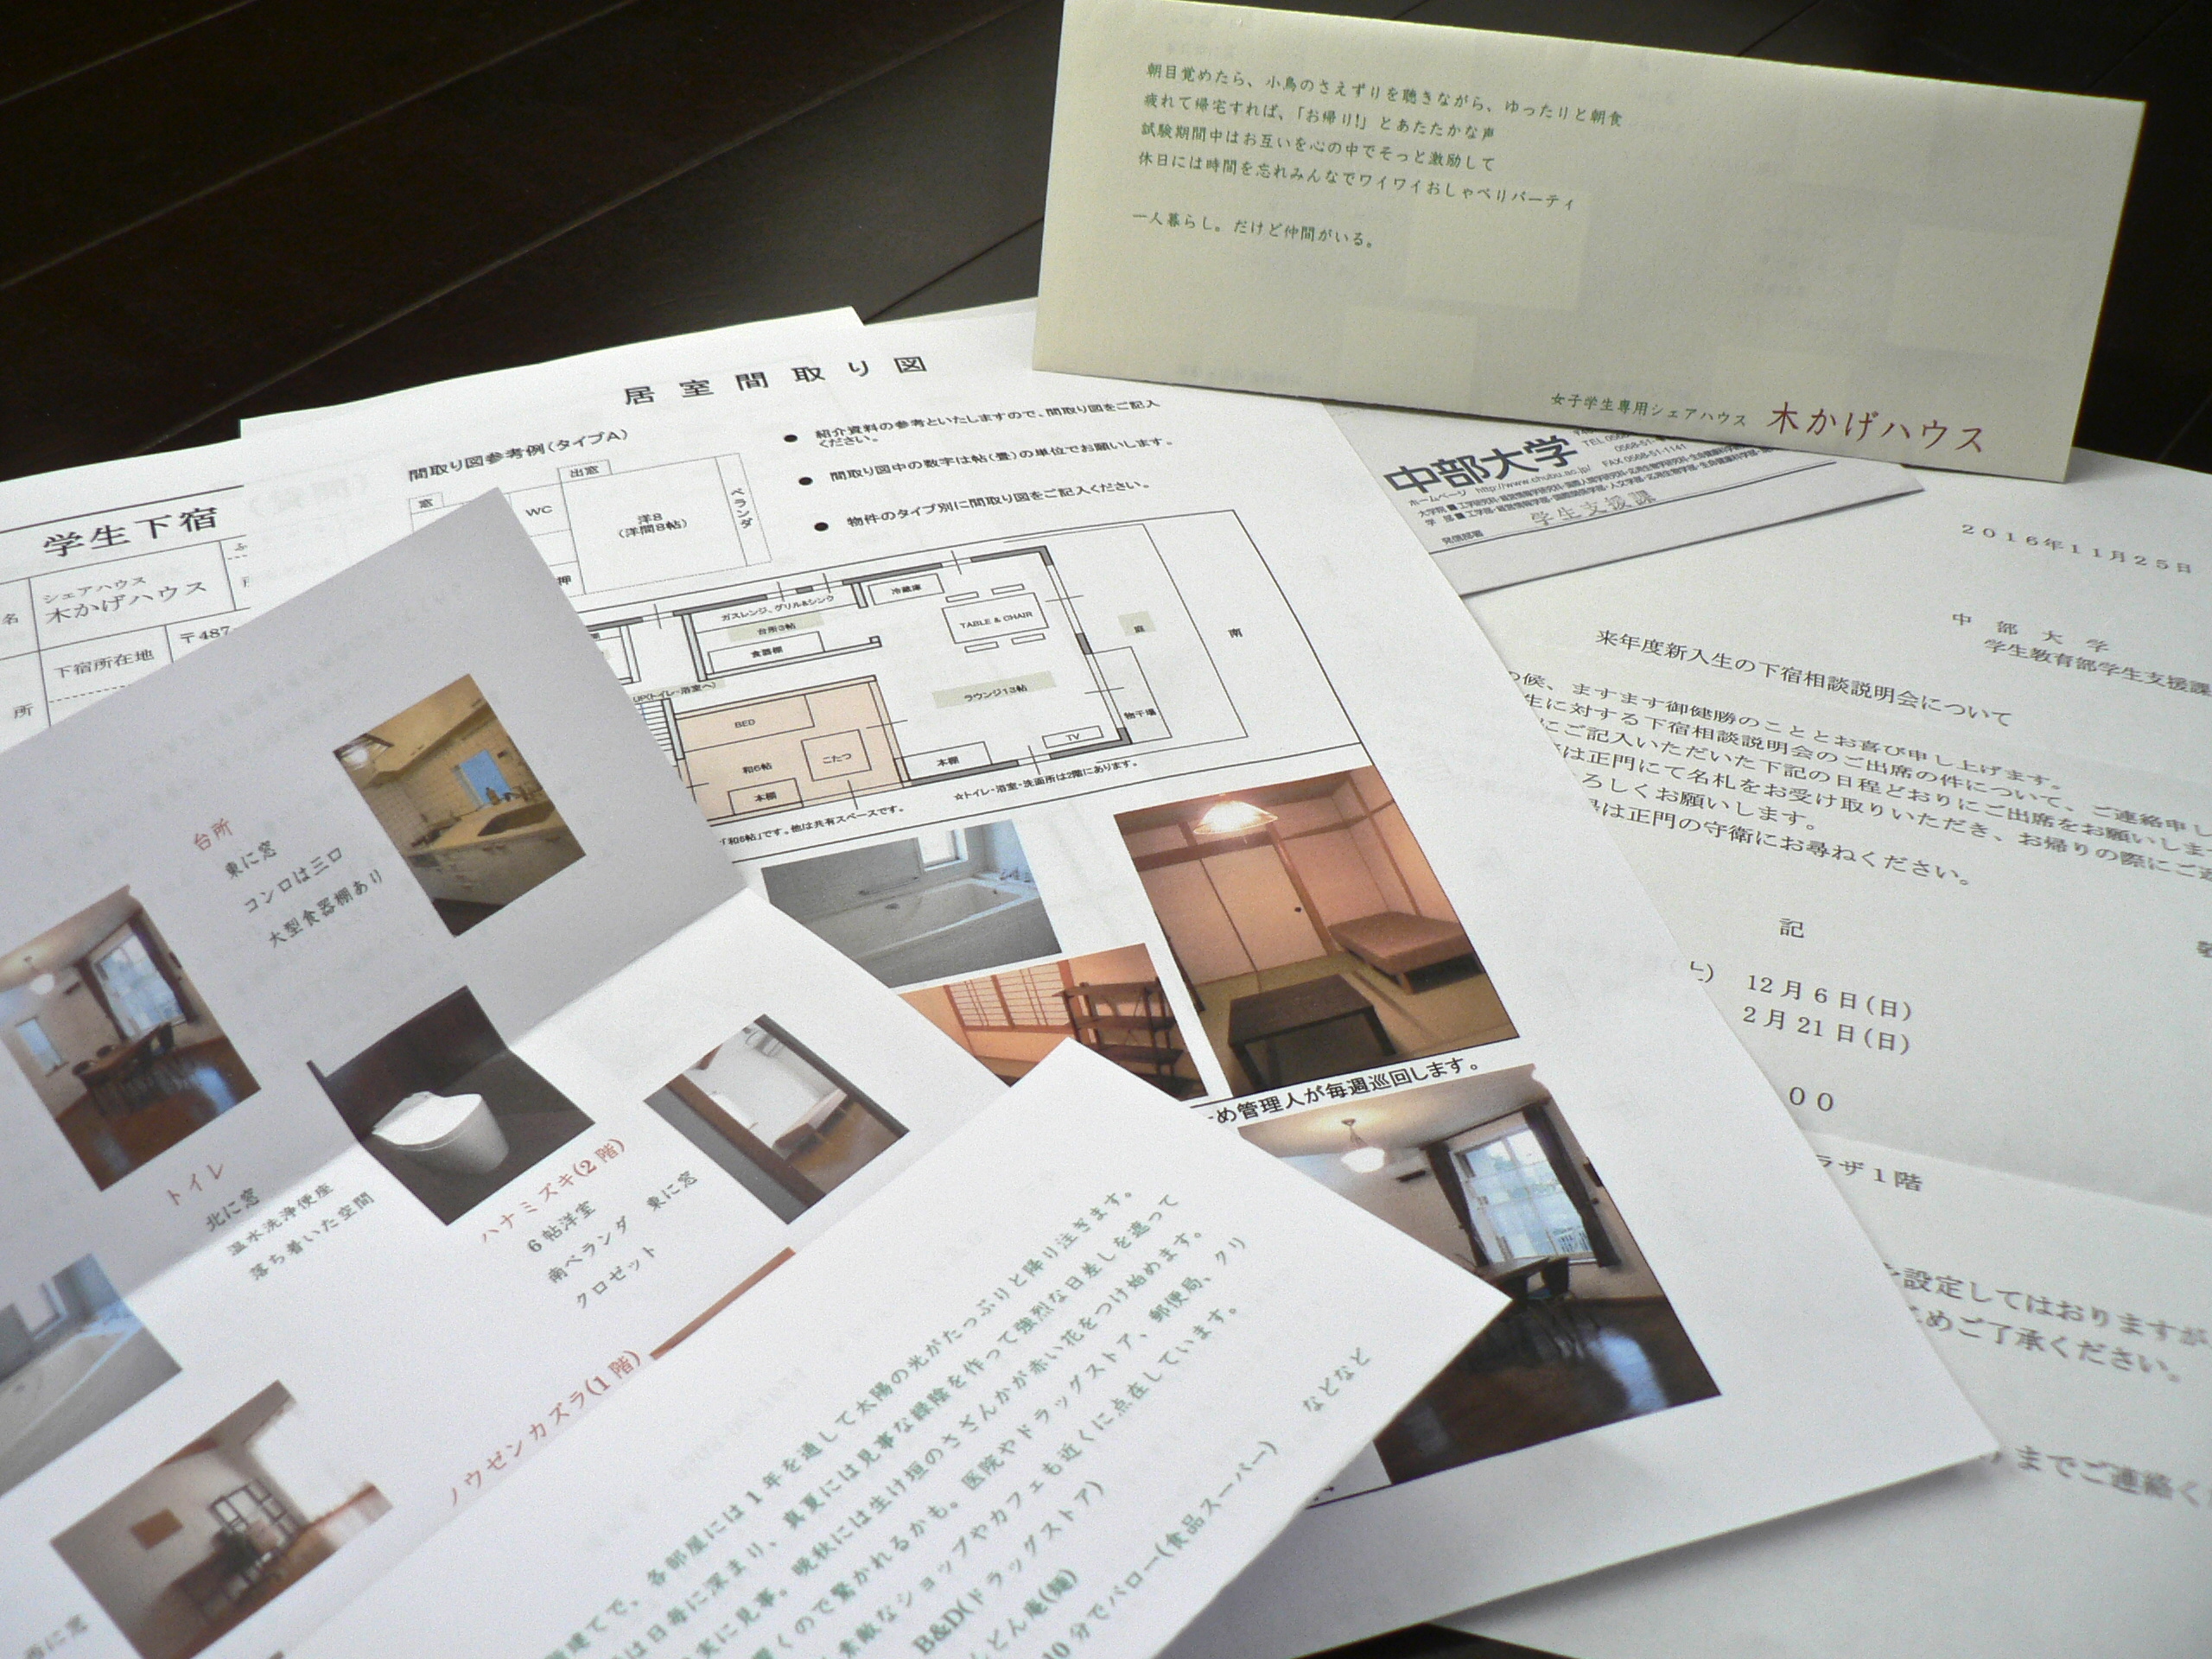 朝目覚めたら、小鳥のさえずりを聴きながら、ゆったりと朝食
疲れて帰宅すれば、「お帰り!」とあたたかな声
試験期間中はお互いを心の中でそっと激励して
休日には時間を忘れみんなでワイワイおしゃべりパーティ
一人暮らし。だけど仲間がいる。
女子学生専用シェアハウス 木かげハウス
中部大学
TEL 0568-51-
FAX 0568-51-1141
ホームページ http://www.chubu.ac.jp/
発信部署 学生支援課
2016年11月25日
中部大学
学生教育部学生支援課
来年度新入生の下宿相談説明会について
の候、ますます御健勝のこととお喜び申し上げます。
生に対する下宿相談説明会のご出席の件について、ご連絡申し
にご記入いただいた下記の日程どおりにご出席をお願いします
は正門にて名札をお受け取りいただき、お帰りの際にご返
ろしくお願いします。
は正門の守衛にお尋ねください。
記
12月6日(日)
2月21日(日)
00
ラザ1階
を設定してはおりますが、
ためご了承ください。
までご連絡く
居室間取り図
間取り図参考例(タイプA)
● 紹介資料の参考といたしますので、間取り図をご記入
ください。
● 間取り図中の数字は帖(畳)の単位でお願いします。
● 物件のタイプ別に間取り図をご記入ください。
窓
出窓
WC
洋8
(洋間8帖)
ベランダ
押
ガスレンジ、グリル&シンク
冷蔵庫
台所3帖
食器棚
TABLE & CHAIR
庭
南
UP(トイレ・浴室へ)
ラウンジ13帖
BED
物干場
和6帖
こたつ
TV
本棚
本棚
☆トイレ・浴室・洗面所は2階にあります。
「和6帖」です。他は共有スペースです。
ため管理人が毎週巡回します。
学生下宿
名
シェアハウス
木かげハウス
所
下宿所在地
〒487-
台所
東に窓
コンロは三口
大型食器棚あり
トイレ
北に窓
温水洗浄便座
落ち着いた空間
ハナミズキ(2階)
6帖洋室
南ベランダ 東に窓
クロゼット
ノウゼンカズラ(1階)
西に窓
階建てで、各部屋には1年を通して太陽の光がたっぷりと降り注ぎます。
は日毎に深まり、真夏には見事な緑陰を作って強烈な日差しを遮って
実に見事。晩秋には生け垣のさざんかが赤い花をつけ始めます。
響くので驚かれるかも。医院やドラッグストア、郵便局、クリ
素敵なショップやカフェも近くに点在しています。
B&D(ドラッグストア)
どん庵(麺)
10分でバロー(食品スーパー)
などなど